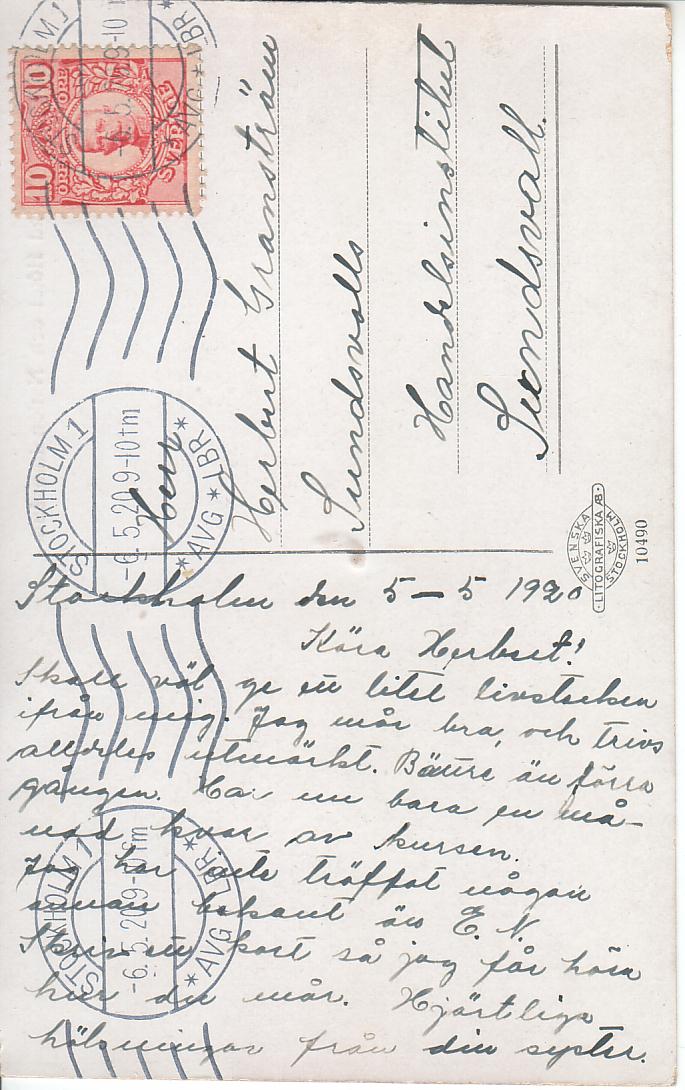 STOCKHOLM 1
-6.5.20 9-10 fm
*AVG*LBR*
10 ÖRE ÖRE 10
SVERIGE
STOCKHOLM 1
-6.5.20 9-10 fm
*AVG*LBR*
Herr
Herbert Granström
Sundsvalls
Handelsinstitut
Sundsvall.
SVENSKA
LITOGRAFISKA AB
STOCKHOLM
10490
Stockholm den 5-5 1920
Kära Herbert!
Skall väl ge ett litet livstecken
ifrån mig. Jag mår bra, och trivs
alldeles utmärkt. Bättre än förra
gången. Har nu bara en må-
nad kvar av kursen.
Jag har inte träffat någon
annan bekant än E. N.
Skriv ett kort så jag får höra
hur du mår. Hjärtliga
hälsningar från din syster.
STOCKHOLM 1
-6.5.20 9-10 fm
*AVG*LBR*